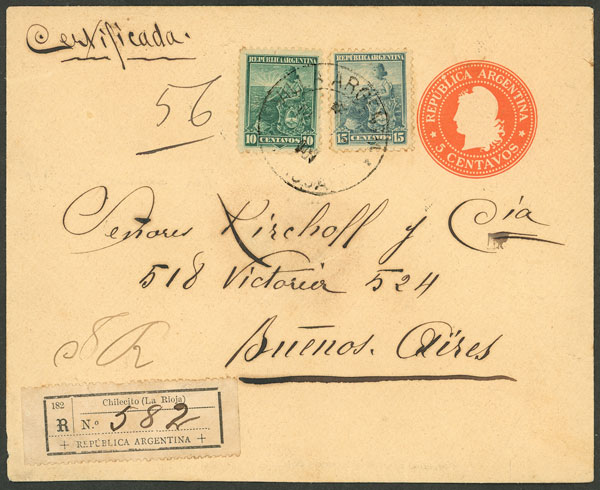 Certificada.
REPÚBLICA ARGENTINA
10 CENTAVOS 10
REPÚBLICA ARGENTINA
15 CENTAVOS 15
REPÚBLICA ARGENTINA
5 CENTAVOS
56
Señores Kirchoff y Cía
518 Victoria 524
Buenos. Aires
182
Chilecito (La Rioja)
R Nº 582
+ REPÚBLICA ARGENTINA +